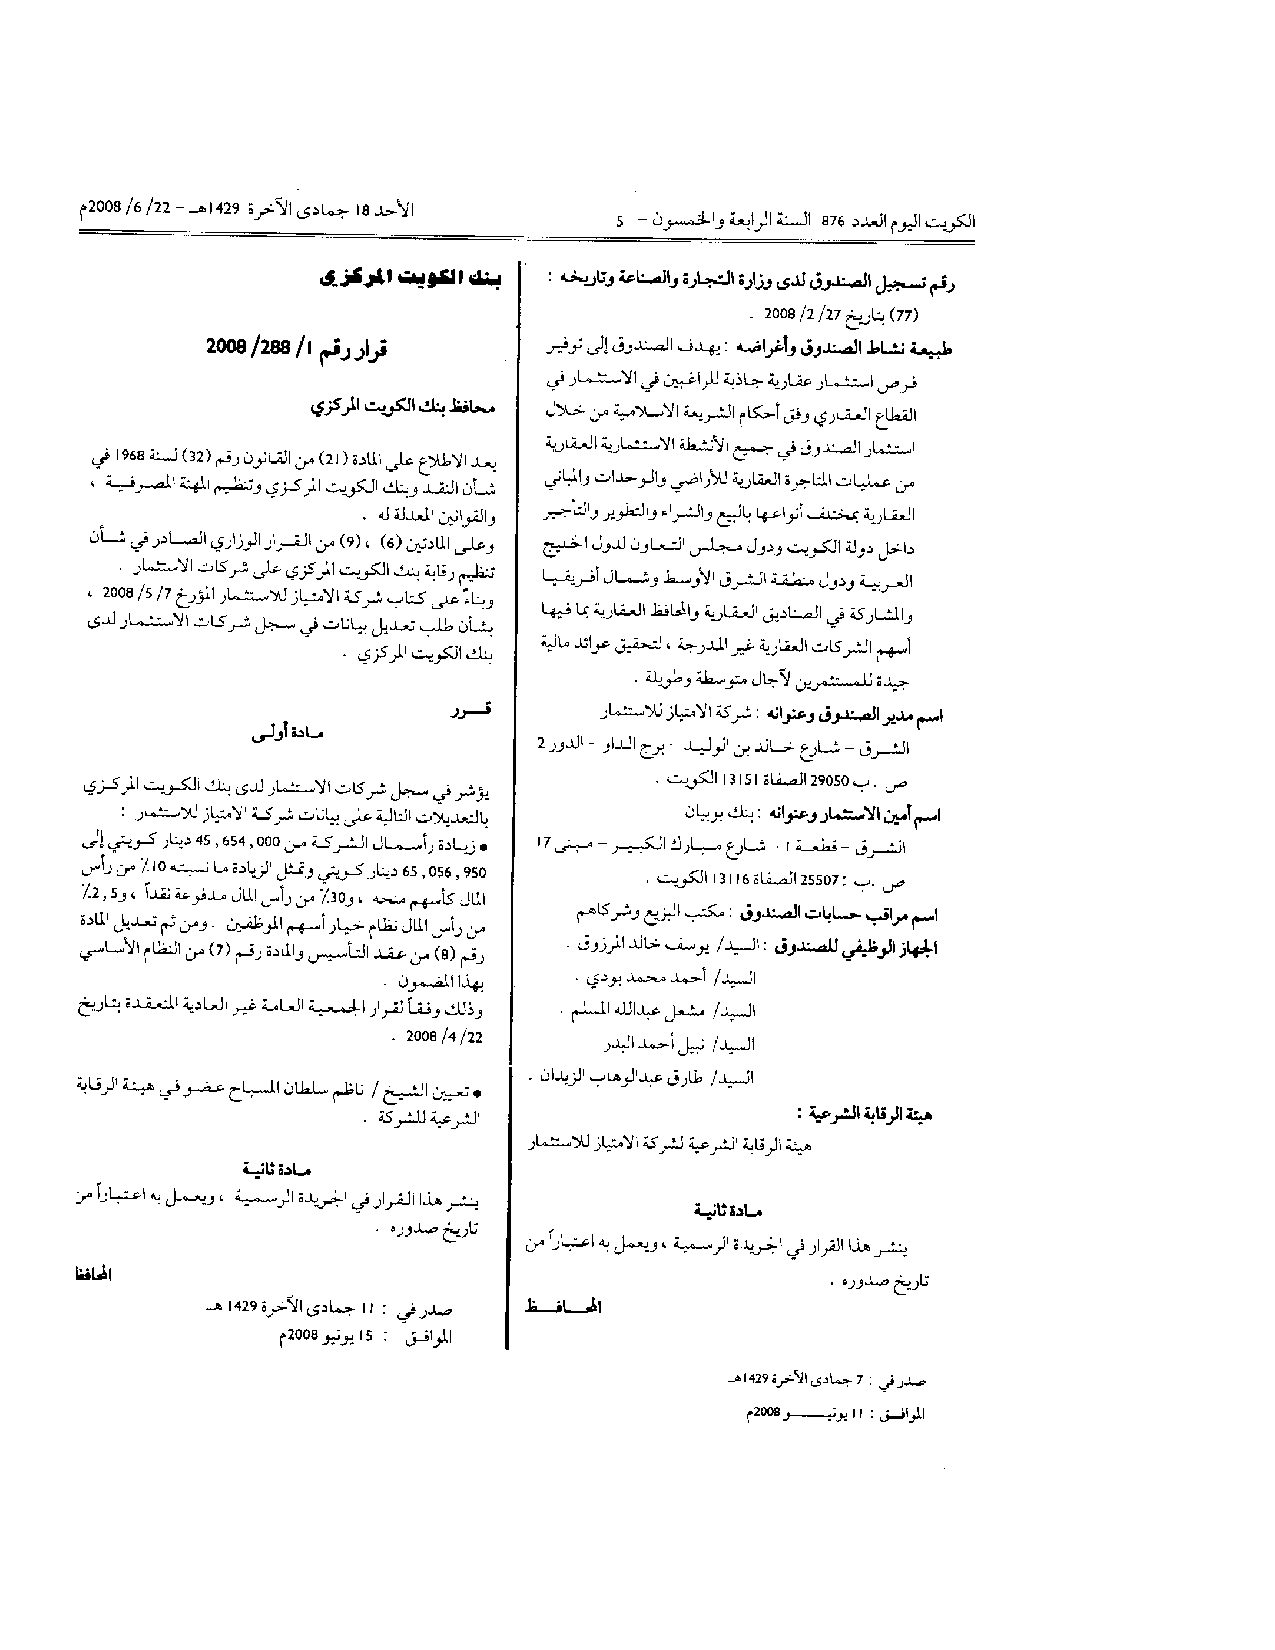 الكويت اليوم العدد 876 السنة الرابعة والخمسون - 5
الأحد 18 جمادى الآخرة 1429هـ - 22/ 6/ 2008م
رقم تسجيل الصندوق لدى وزارة التجارة والصناعة وتاريخه :
(77) بتاريخ 27/ 2/ 2008 .
طبيعة نشاط الصندوق وأغراضه : يهدف الصندوق إلى توفير
فرص استثمار عقارية جاذبة للراغبين في الاستثمار في
القطاع العقاري وفق أحكام الشريعة الاسلامية من خلال
استثمار الصندوق في جميع الأنشطة الاستثمارية العقارية
من عمليات المتاجرة العقارية للأراضي والوحدات والمباني
العقارية بمختلف أنواعها بالبيع والشراء والتطوير والتأجير
داخل دولة الكويت ودول مجلس التعاون لدول الخليج
العربية ودول منطقة الشرق الأوسط وشمال أفريقيا
والمشاركة في الصناديق العقارية والمحافظ العقارية بما فيها
أسهم الشركات العقارية غير المدرجة ، لتحقيق عوائد مالية
جيدة للمستثمرين لآجال متوسطة وطويلة .
اسم مدير الصندوق وعنوانه : شركة الامتياز للاستثمار
الشرق - شارع خالد بن الوليد - برج الداو - الدور 2
ص . ب 29050 الصفاة 13151 الكويت .
اسم أمين الاستثمار وعنوانه : بنك بوبيان
الشرق - قطعة 1 - شارع مبارك الكبير - مبنى 17
ص .ب : 25507 الصفاة 13116 الكويت .
اسم مراقب حسابات الصندوق : مكتب البزيع وشركاهم
الجهاز الوظيفي للصندوق : السيد/ يوسف خالد المرزوق .
السيد/ أحمد محمد بودي .
السيد/ مشعل عبدالله المسلم .
السيد/ نبيل أحمد البدر
السيد/ طارق عبدالوهاب الزيدان .
هيئة الرقابة الشرعية :
هيئة الرقابة الشرعية لشركة الامتياز للاستثمار
مادة ثانية
ينشر هذا القرار في الجريدة الرسمية ، ويعمل به اعتباراً من
تاريخ صدوره .
المحافظ
صدر في : 7 جمادى الآخرة 1429هـ
الموافق : 11 يونيو 2008م
بنك الكويت المركزي
قرار رقم 1/ 288/ 2008
محافظ بنك الكويت المركزي
بعد الاطلاع على المادة (21) من القانون رقم (32) لسنة 1968 في
شأن النقد وبنك الكويت المركزي وتنظيم المهنة المصرفية ،
والقوانين المعدلة له .
وعلى المادتين (6) ، (9) من القرار الوزاري الصادر في شأن
تنظيم رقابة بنك الكويت المركزي على شركات الاستثمار .
وبناءً على كتاب شركة الامتياز للاستثمار المؤرخ 7/ 5/ 2008 ،
بشأن طلب تعديل بيانات في سجل شركات الاستثمار لدى
بنك الكويت المركزي .
قـــرر
مادة أولى
يؤشر في سجل شركات الاستثمار لدى بنك الكويت المركزي
بالتعديلات التالية على بيانات شركة الامتياز للاستثمار :
• زيادة رأسمال الشركة من 45,654,000 دينار كويتي إلى
65,056,950 دينار كويتي وتمثل الزيادة ما نسبته 10٪ من رأس
المال كأسهم منحة ، و30٪ من رأس المال مدفوعة نقداً ، و2,5٪
من رأس المال نظام خيار أسهم الموظفين . ومن ثم تعديل المادة
رقم (8) من عقد التأسيس والمادة رقم (7) من النظام الأساسي
بهذا المضمون .
وذلك وفقاً لقرار الجمعية العامة غير العادية المنعقدة بتاريخ
22/ 4/ 2008 .
• تعيين الشيخ / ناظم سلطان المسباح عضو في هيئة الرقابة
الشرعية للشركة .
مادة ثانية
ينشر هذا القرار في الجريدة الرسمية ، ويعمل به اعتباراً من
تاريخ صدوره .
المحافظ
صدر في : 11 جمادى الآخرة 1429 هـ
الموافق : 15 يونيو 2008م